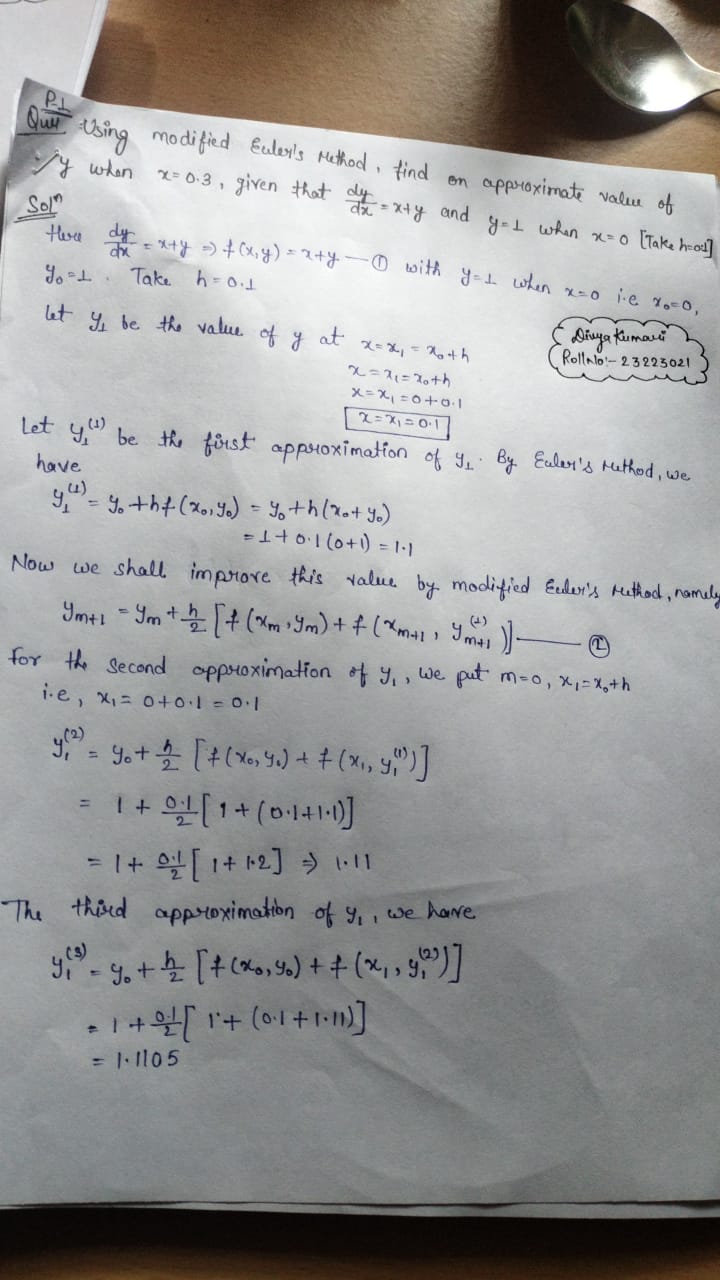 P-1
Que Using modified Euler's Method, find on approximate value of
y when x=0.3, given that dy/dx = x+y and y=1 when x=0 [Take h=0.1]
Solⁿ
Here dy/dx = x+y ⇒ f(x,y) = x+y —① with y=1 when x=0 i.e x₀=0,
y₀=1. Take h=0.1
let y₁ be the value of y at x=x₁ = x₀+h
x=x₁=x₀+h
x=x₁=0+0.1
x=x₁=0.1
Divya Kumari
Roll No:- 23223021
Let y₁⁽¹⁾ be the first approximation of y₁. By Euler's Method, we
have
y₁⁽¹⁾ = y₀+hf(x₀,y₀) = y₀+h(x₀+y₀)
=1+0.1(0+1) = 1.1
Now we shall improve this value by modified Euler's Method, namely
yₘ₊₁ = yₘ + h/2 [f(xₘ,yₘ) + f(xₘ₊₁, yₘ₊₁⁽¹⁾)] —— ②
for the Second approximation of y₁, we put m=0, x₁=x₀+h
i.e, x₁= 0+0.1 = 0.1
y₁⁽²⁾ = y₀ + h/2 [f(x₀,y₀) + f(x₁, y₁⁽¹⁾)]
= 1 + 0.1/2 [1 + (0.1+1.1)]
= 1+ 0.1/2 [1+ 1.2] ⇒ 1.11
The third approximation of y₁, we have
y₁⁽³⁾ = y₀ + h/2 [f(x₀,y₀) + f(x₁, y₁⁽²⁾)]
= 1 + 0.1/2 [1+ (0.1+1.11)]
= 1.1105